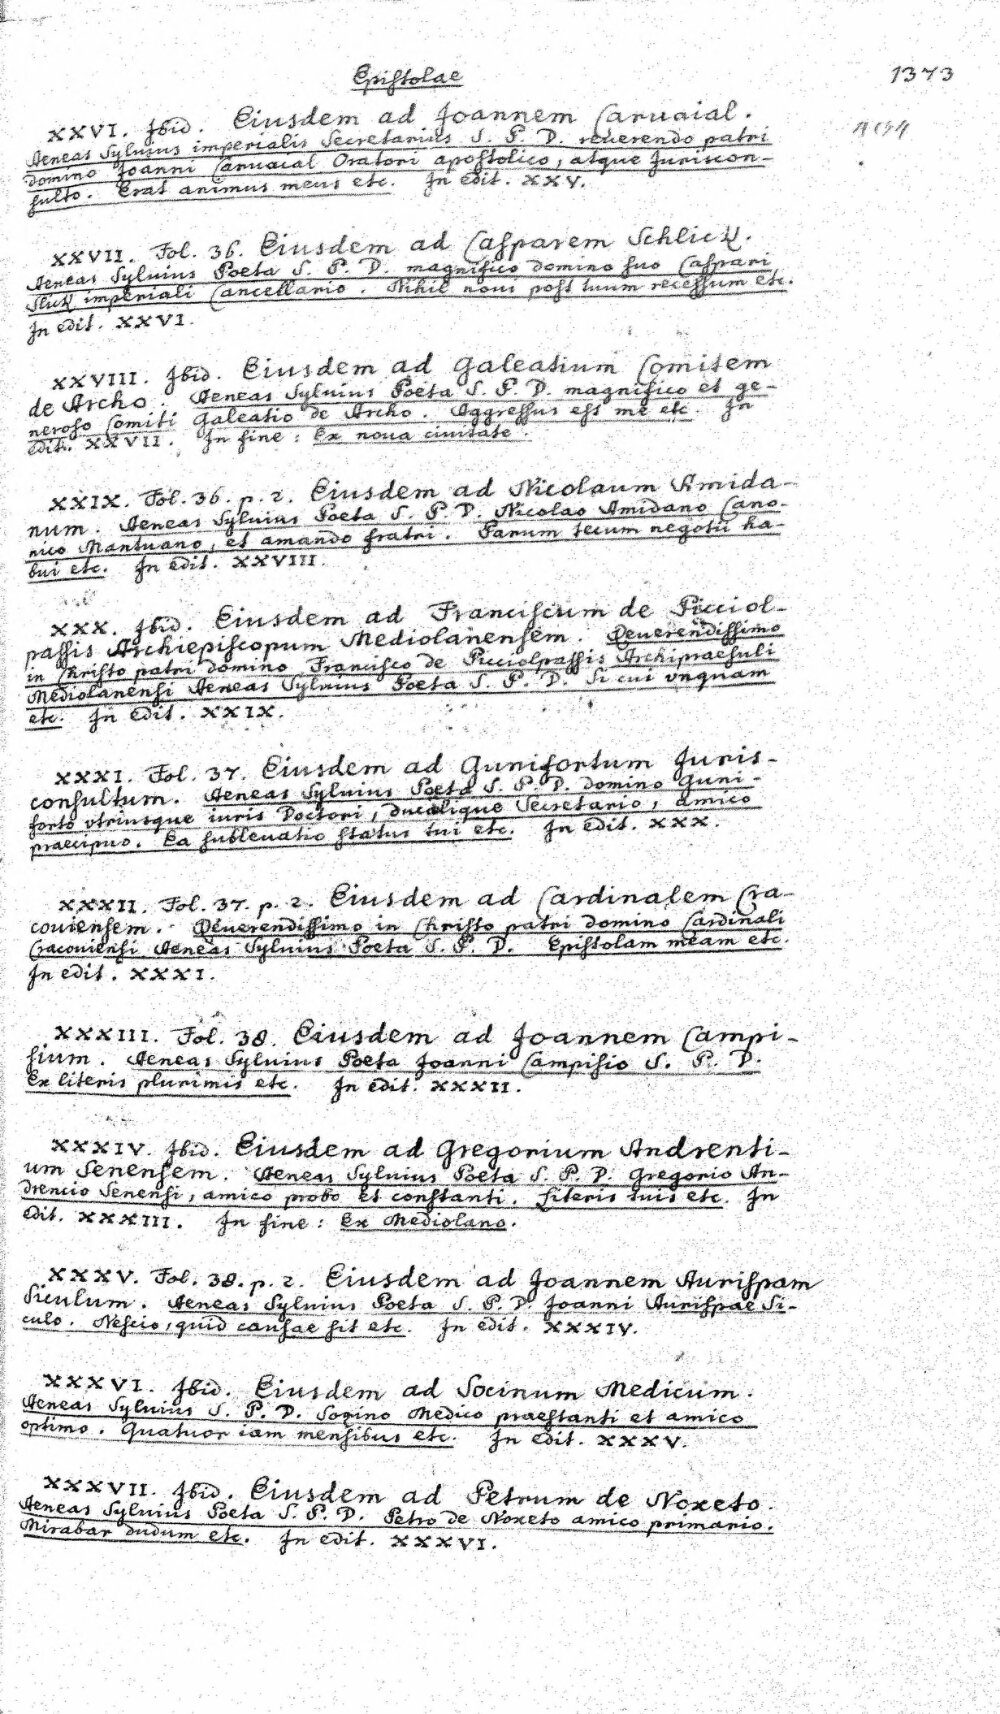 Epistolae
1373
XXVI. Ibid. Eiusdem ad Joannem Caruaial.
Aeneas Syluius imperialis Secretarius S. P. D. reuerendo patri
domino Joanni Caruaial Oratori apostolico, atque Juriscon-
sulto. Erat animus meus etc. In edit. XXV.
XXVII. Fol. 36. Eiusdem ad Casparem Schlick.
Aeneas Syluius Poeta S. P. D. magnifico domino suo Caspari
Slick imperiali Cancellario. Nihil noui post tuum recessum etc.
In edit. XXVI.
XXVIII. Ibid. Eiusdem ad Galeatium Comitem
de Archo. Aeneas Syluius Poeta S. P. D. magnifico et ge-
neroso Comiti Galeatio de Archo. Aggressus est me etc. In
edit. XXVII. In fine: Ex noua ciuitate.
XXIX. Fol. 36. p. 2. Eiusdem ad Nicolaum Amida-
num. Aeneas Syluius Poeta S. P. D. Nicolao Amidano Cano-
nico Mantuano, et amando fratri. Parum tecum negotii ha-
bui etc. In edit. XXVIII.
XXX. Ibid. Eiusdem ad Franciscum de Picciol-
passis Archiepiscopum Mediolanensem. Reuerendissimo
in Christo patri domino Francisco de Picciolpassis Archipraesuli
Mediolanensi Aeneas Syluius Poeta S. P. D. Si cui vnquam
etc. In edit. XXIX.
XXXI. Fol. 37. Eiusdem ad Gunifortum Juris-
consultum. Aeneas Syluius Poeta S. P. D. domino Guni-
forto vtriusque iuris Doctori, ducalique Secretario, amico
praecipuo. Ea subleuatio status tui etc. In edit. XXX.
XXXII. Fol. 37. p. 2. Eiusdem ad Cardinalem Cra-
couiensem. Reuerendissimo in Christo patri domino Cardinali
Cracouiensi Aeneas Syluius Poeta S. P. D. Epistolam meam etc.
In edit. XXXI.
XXXIII. Fol. 38. Eiusdem ad Joannem Campi-
sium. Aeneas Syluius Poeta Joanni Campisio S. P. D.
Ex literis plurimis etc. In edit. XXXII.
XXXIV. Ibid. Eiusdem ad Gregorium Andrenti-
um Senensem. Aeneas Syluius Poeta S. P. D. Gregorio An-
drencio Senensi, amico probo et constanti. Literis tuis etc. In
edit. XXXIII. In fine: Ex Mediolano.
XXXV. Fol. 38. p. 2. Eiusdem ad Joannem Aurispam
Siculum. Aeneas Syluius Poeta S. P. D. Joanni Aurispae Si-
culo. Nescio, quid causae sit etc. In edit. XXXIV.
XXXVI. Ibid. Eiusdem ad Socinum Medicum.
Aeneas Syluius S. P. D. Sozino Medico praestanti et amico
optimo. Quatuor iam mensibus etc. In edit. XXXV.
XXXVII. Ibid. Eiusdem ad Petrum de Noxeto.
Aeneas Syluius Poeta S. P. D. Petro de Noxeto amico primario.
Mirabar dudum etc. In edit. XXXVI.